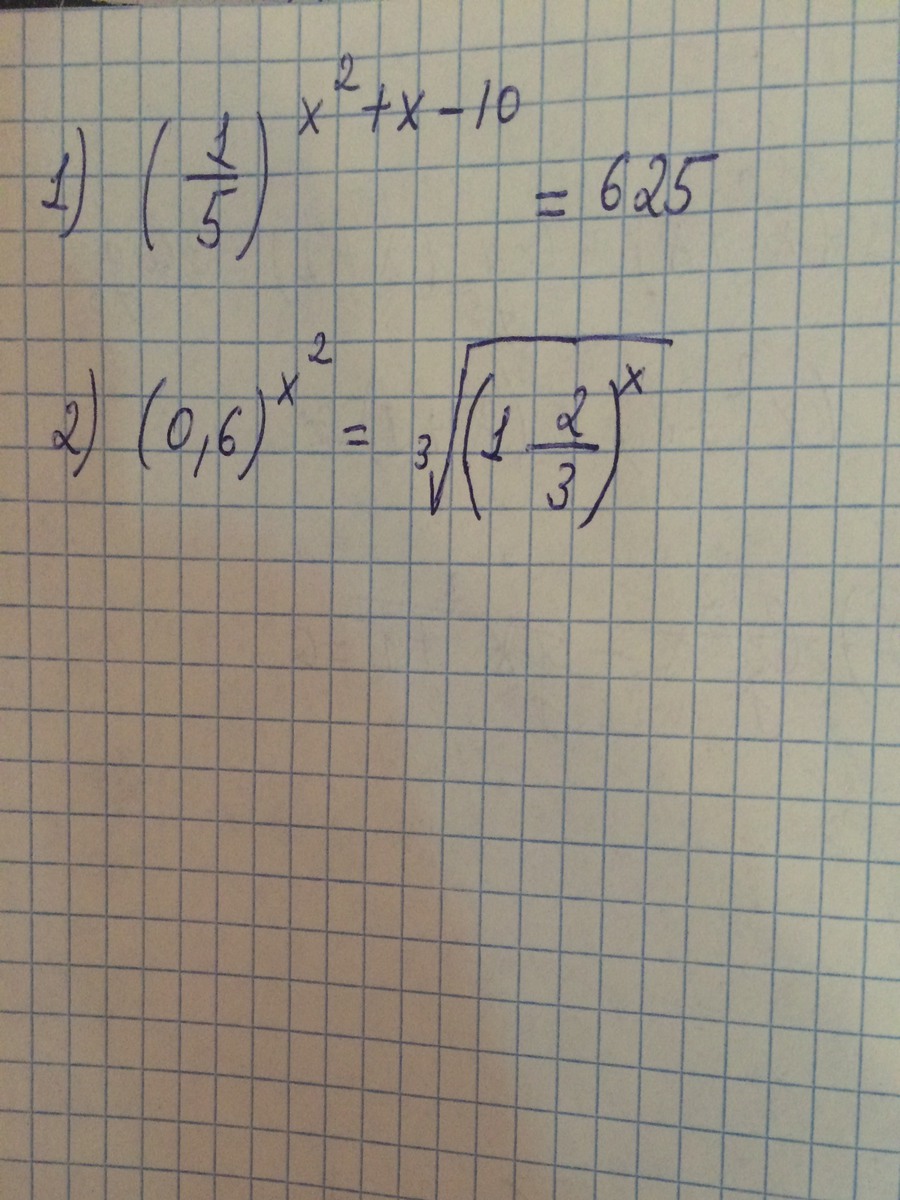 1) (1/5)^(x^2+x-10) = 625
2) (0,6)^(x^2) = ∛((1 2/3)^x)